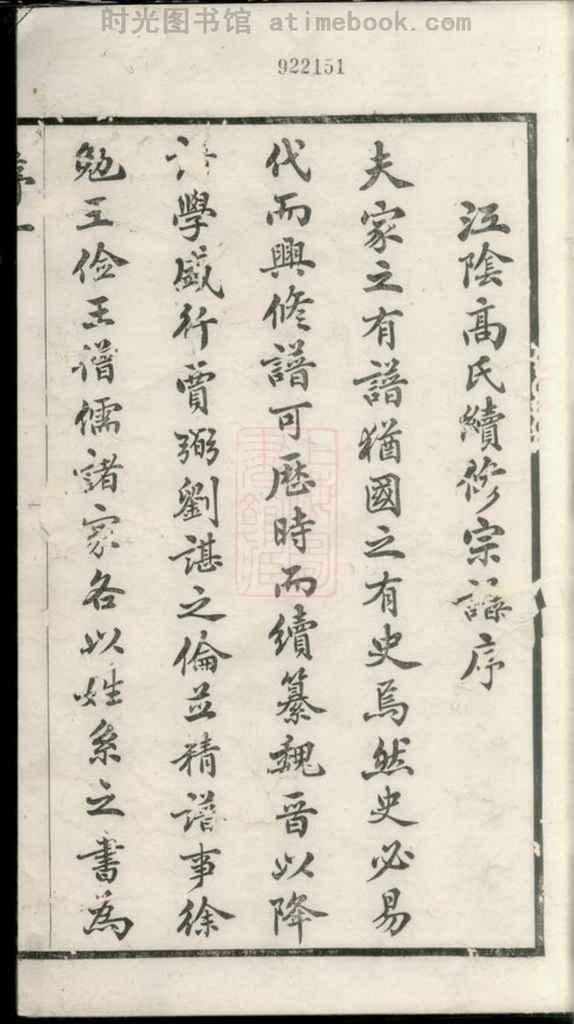 时光图书馆 atimebook.com
922151
江陰高氏續修宗譜序
夫家之有譜猶國之有史焉然史必易
代而興修譜可歷時而續纂魏晉以降
譜學盛行賈弼劉諶之倫並精譜事徐
勉王儉王僧儒諸家各以姓系之書為
序一